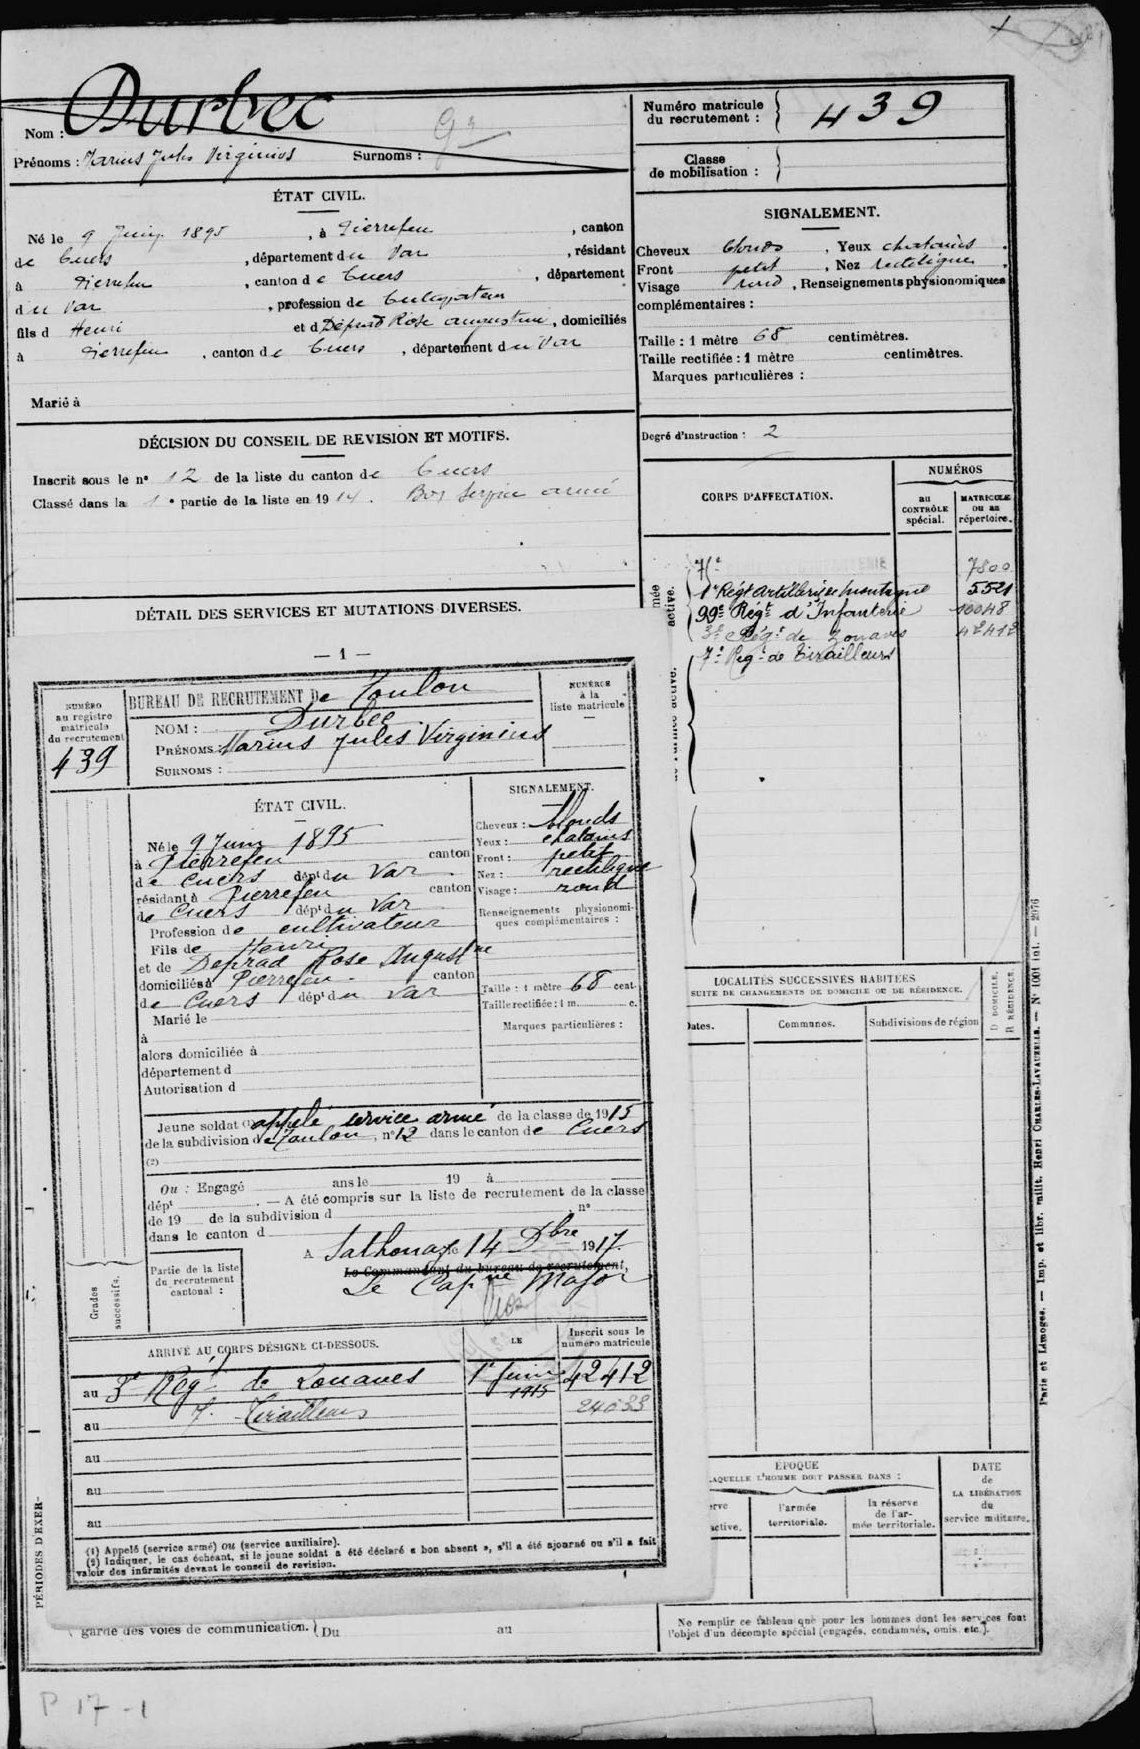 Nom : Durbec
Prénoms : Marius Jules Virginius Surnoms :
Numéro matricule
du recrutement : 439
Classe
de mobilisation :
ÉTAT CIVIL.
Né le 9 Juin 1895, à Pierrefeu, canton
de Cuers, département du Var, résidant
à Pierrefeu, canton de Cuers, département
du Var, profession de Cultivateur
fils d Henri et d Déprad Rose Augustine, domiciliés
à Pierrefeu, canton de Cuers, département du Var
Marié à
SIGNALEMENT.
Cheveux blonds, Yeux chatains.
Front petit, Nez rectiligne.
Visage rond, Renseignements physionomiques
complémentaires :
Taille : 1 mètre 68 centimètres.
Taille rectifiée : 1 mètre centimètres.
Marques particulières :
Degré d'instruction : 2
DÉCISION DU CONSEIL DE REVISION ET MOTIFS.
Inscrit sous le nº 12 de la liste du canton de Cuers
Classé dans la 1e partie de la liste en 1914. Bon Service armé
CORPS D'AFFECTATION.
NUMÉROS
au
CONTRÔLE
spécial.
MATRICULE
ou au
répertoire.
7e 7800
1er Régt Artillerie de montagne 5521
99e Régt d'Infanterie 10048
3e Régt de Zouaves 42412
7e Regt de Tirailleurs
mée
active.
de l'armée active.
DÉTAIL DES SERVICES ET MUTATIONS DIVERSES.
— 1 —
NUMÉRO
au registre
matricule
du recrutement
439
BUREAU DE RECRUTEMENT De Toulon
NOM : Durbec
PRÉNOMS : Marius Jules Virginius
SURNOMS :
NUMÉROS
à la
liste matricule
ÉTAT CIVIL.
Né le 9 Juin 1895
à Pierrefeu canton
de Cuers dépt du Var
résidant à Pierrefeu canton
de Cuers dépt du Var
Profession de cultivateur
Fils de Henri
et de Deprad Rose Augustine
domiciliés à Pierrefeu canton
de Cuers dépt du Var
Marié le
à
alors domiciliée à
département d
Autorisation d
SIGNALEMENT.
Cheveux : blonds
Yeux : chatains
Front : petit
Nez : rectiligne
Visage : rond
Renseignements physionomi-
ques complémentaires :
Taille : 1 mètre 68 cent.
Taille rectifiée : 1 m. c.
Marques particulières :
Jeune soldat (1) appelé service armé de la classe de 1915
de la subdivision de Toulon, nº 12 dans le canton de Cuers
(2)
Ou : Engagé ans le 19 à
dépt . — A été compris sur la liste de recrutement de la classe
de 19 de la subdivision d , nº
dans le canton d
A Sathonay le 14 Dbre 1917.
Le Commandant du bureau de recrutement,
Le Capne Major
Partie de la liste
du recrutement
cantonal :
Grades
successifs.
ARRIVÉ AU CORPS DÉSIGNÉ CI-DESSOUS.
LE
Inscrit sous le
numéro matricule
au 3e Régt de Zouaves 1er Juin 1915 42412
au 7e Tirailleurs 24033
au
au
au
(1) Appelé (service armé) ou (service auxiliaire).
(2) Indiquer, le cas échéant, si le jeune soldat a été déclaré « bon absent », s'il a été ajourné ou s'il a fait
valoir des infirmités devant le conseil de revision.
LOCALITÉS SUCCESSIVES HABITÉES
SUITE DE CHANGEMENTS DE DOMICILE OU DE RÉSIDENCE.
Dates.
Communes.
Subdivisions de région
D DOMICILE.
R RÉSIDENCE.
ÉPOQUE
LAQUELLE L'HOMME DOIT PASSER DANS :
erve
active.
l'armée
territoriale.
la réserve
de l'ar-
mée territoriale.
DATE
de
LA LIBÉRATION
du
service militaire.
Ne remplir ce tableau que pour les hommes dont les services font
l'objet d'un décompte spécial (engagés, condamnés, omis, etc.).
PÉRIODES D'EXER-
garde des voies de communication. ( Du au
Paris et Limoges. — Imp. et libr. milit. Henri CHARLES-LAVAUZELLE. — Nº 1001 tol. — 2076
P 17 - 1